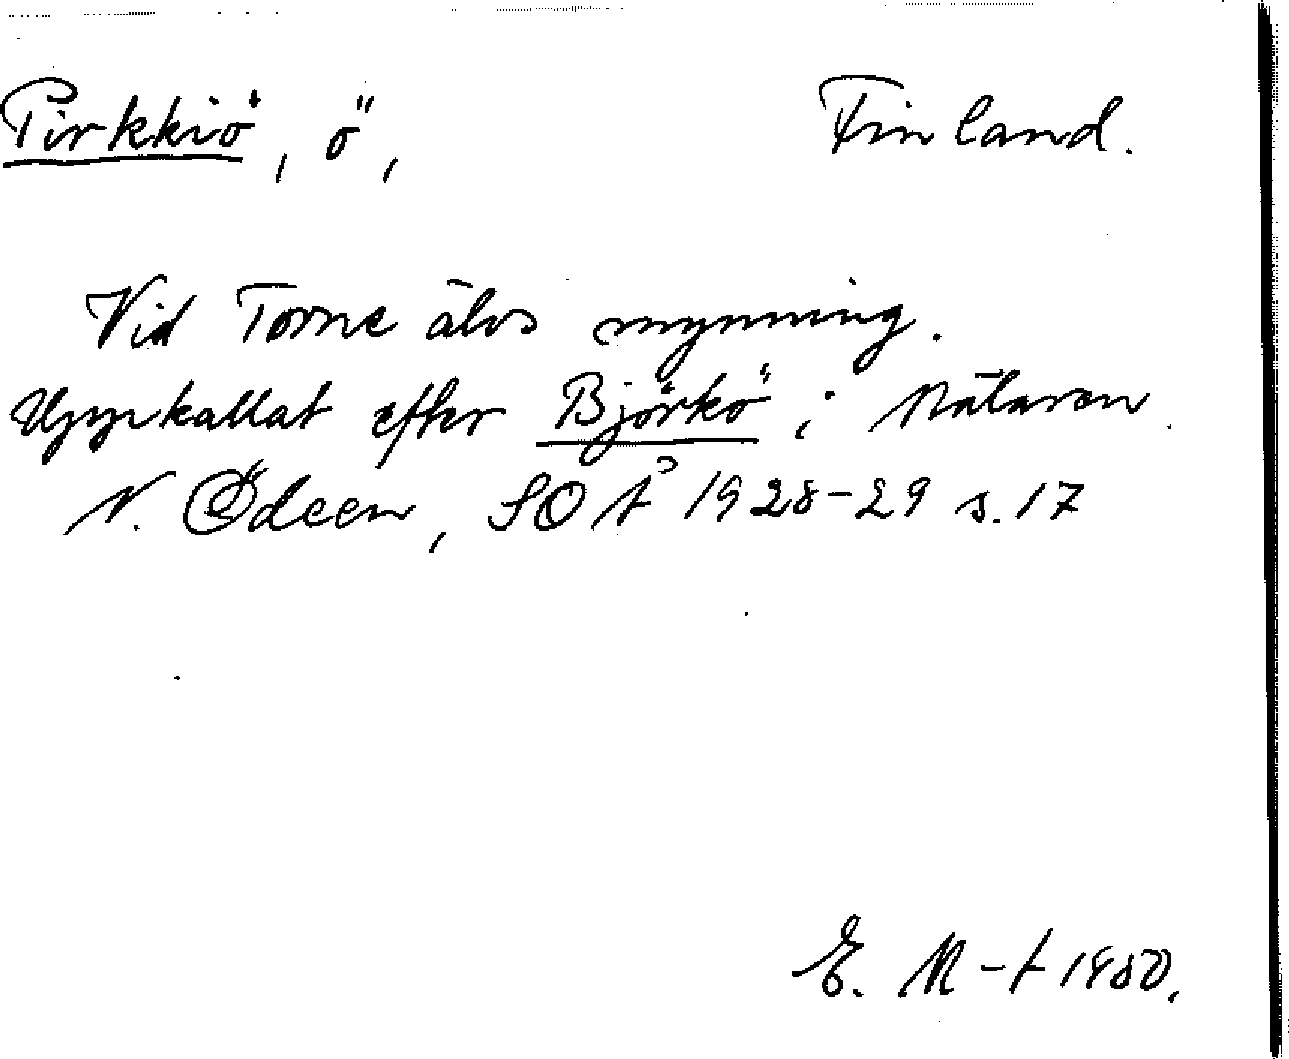 Pirkkiö, ö, Finland.
Vid Torne älvs mynning.
Uppkallat efter Björkö i Mälaren.
N. Ödeen, SOÅ 1928-29 s. 17
E. M-t 1980.